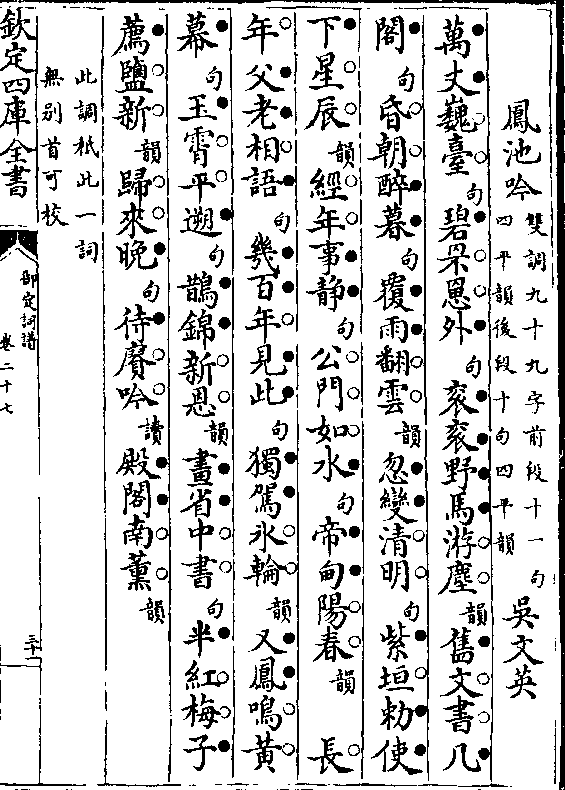 鳳池吟 雙調九十九字前段十一句 吳文英
四平韻後段十句四平韻
萬丈巍臺句碧罘罳外句衮衮野馬游塵韻舊文書几
閣句昏朝醉暮句覆雨翻雲韻忽變清明句紫垣勅使
下星辰韻經年事靜句公門如水句帝甸陽春韻 長
年父老相語句幾百年見此句獨駕氷輪韻又鳳鳴黃
幕句玉霄平遡句鵲錦新恩韻畫省中書句半紅梅子
薦鹽新韻歸來晚句待賡吟讀殿閣南薰韻
此調祇此一詞
無别首可校
欽定四庫全書
御定詞譜
卷二十七
三十一